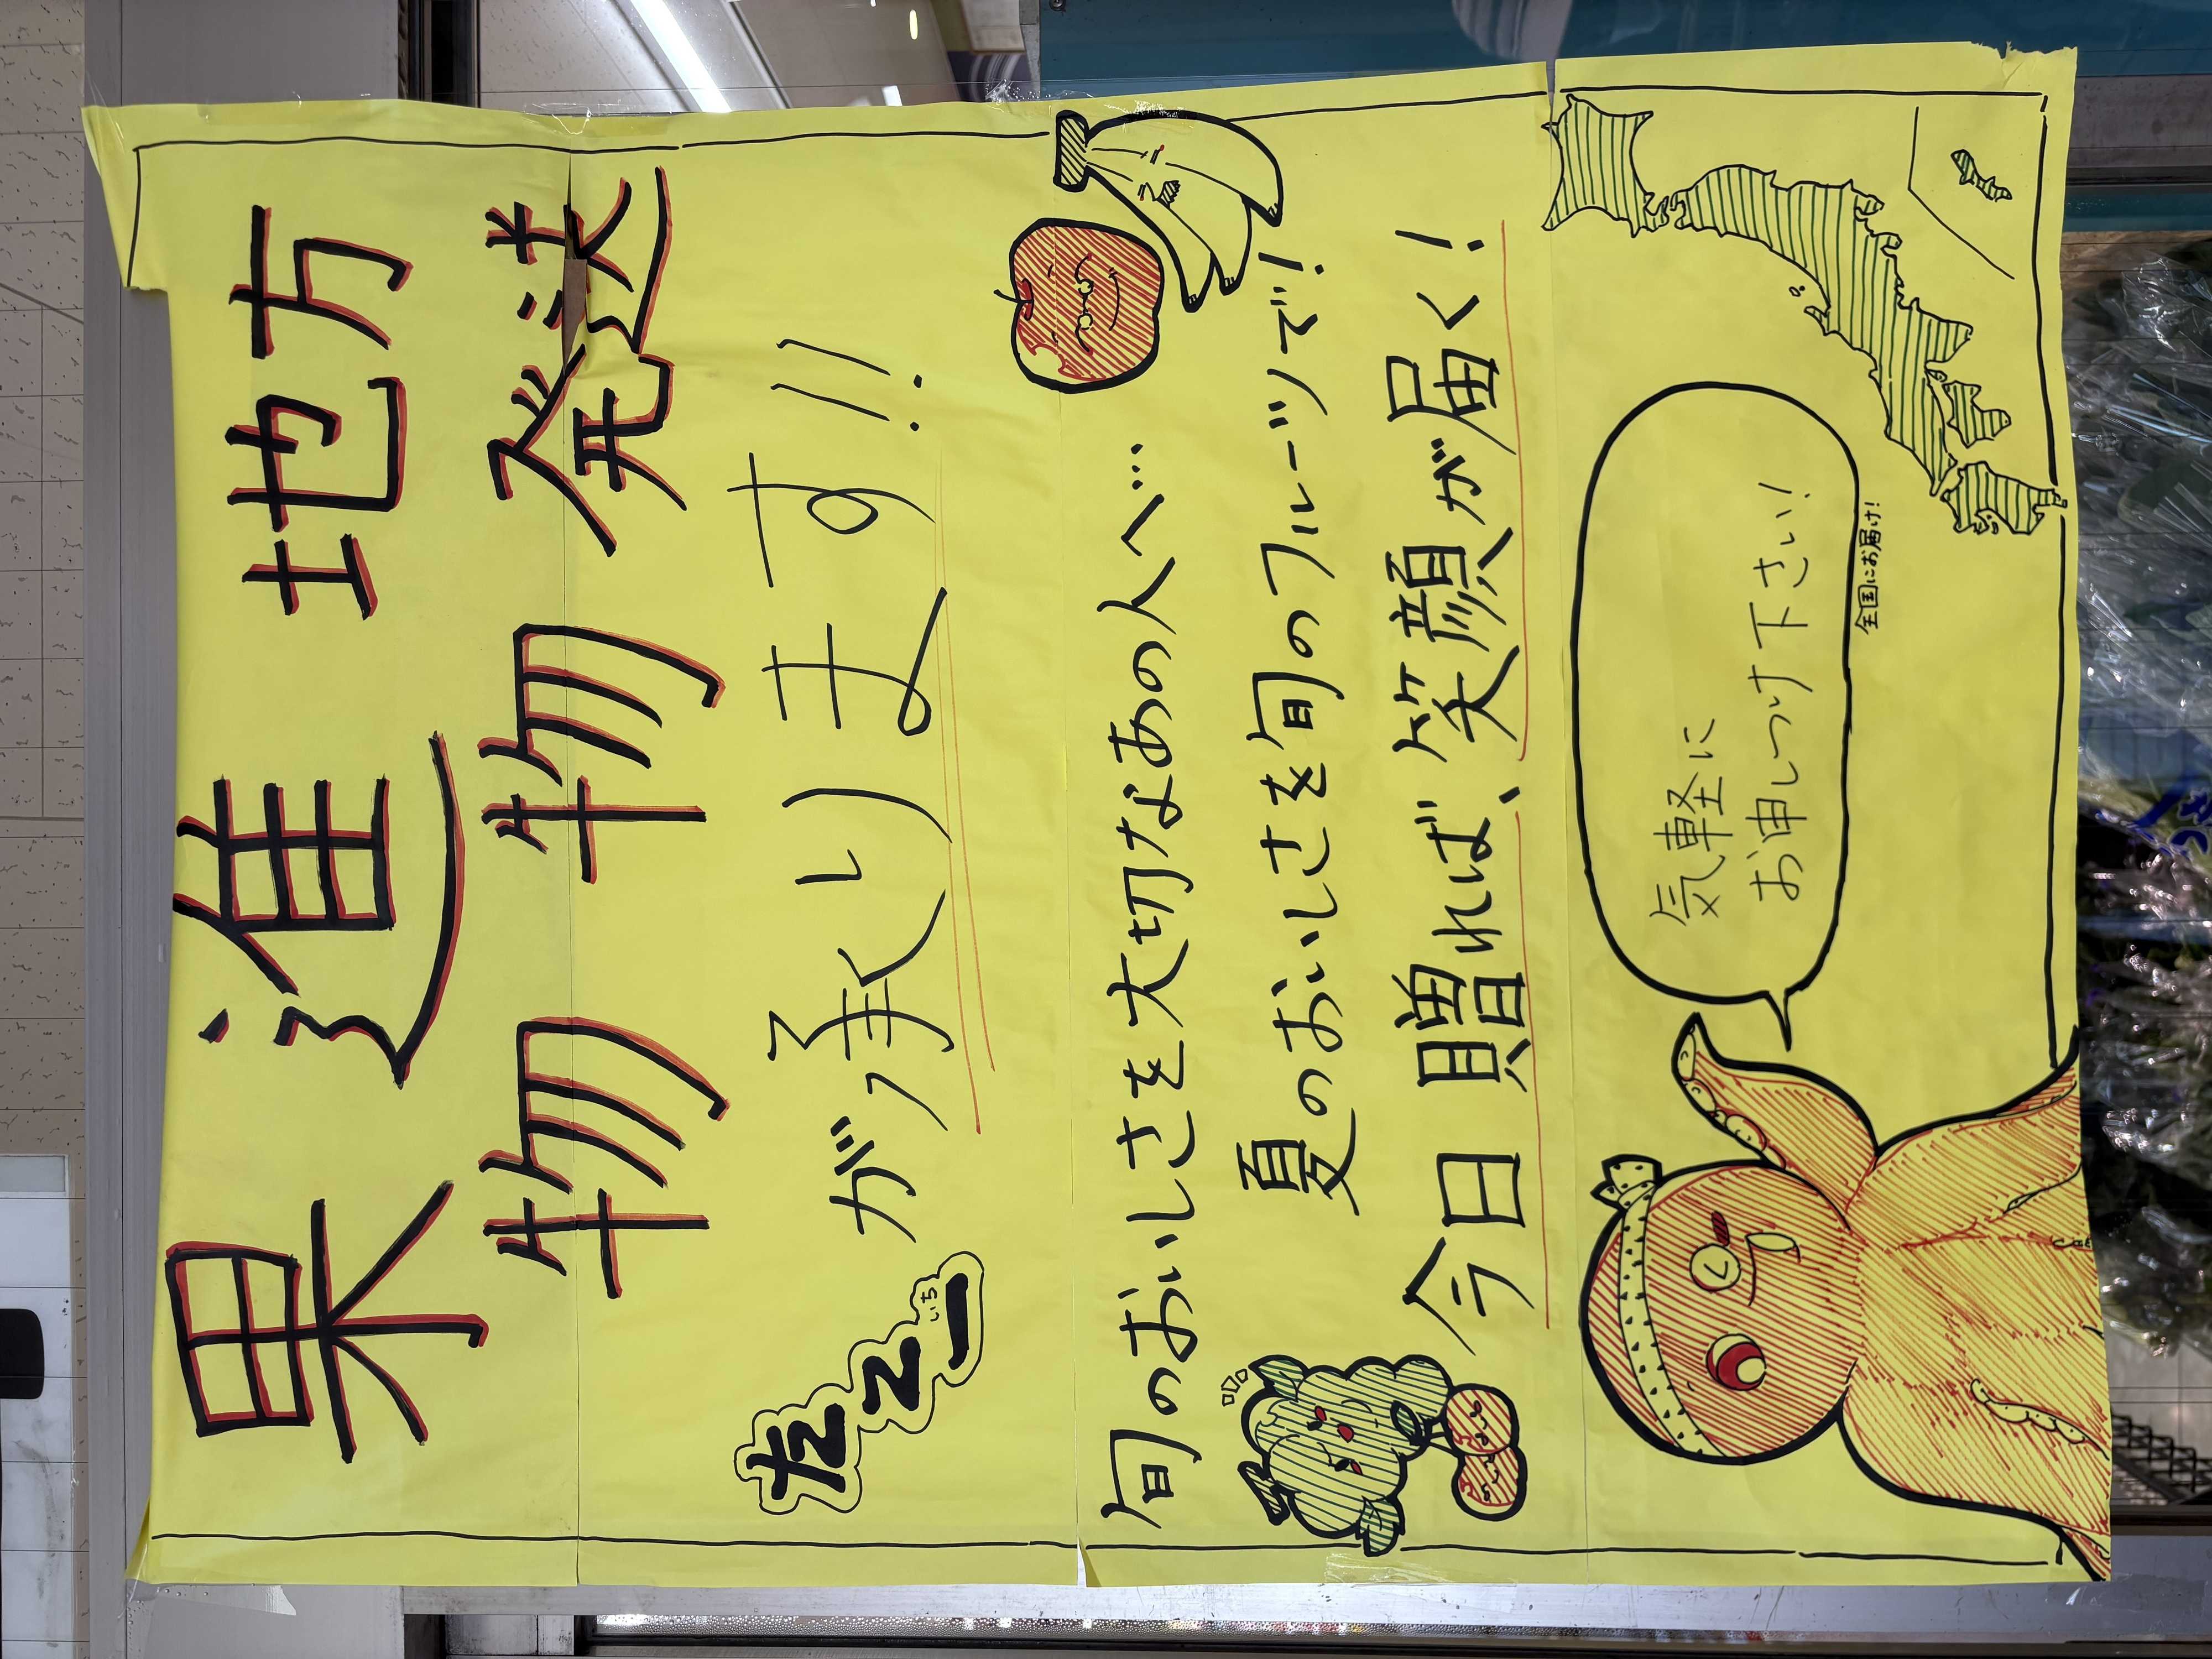 果物
進物
地方
発送
たこ一
いち
が承ります!!
旬のおいしさを大切なあの人へ…
夏のおいしさを旬のフルーツで!
今日贈れば、笑顔が届く!
気軽に
お申しつけ下さい!
全国にお届け!